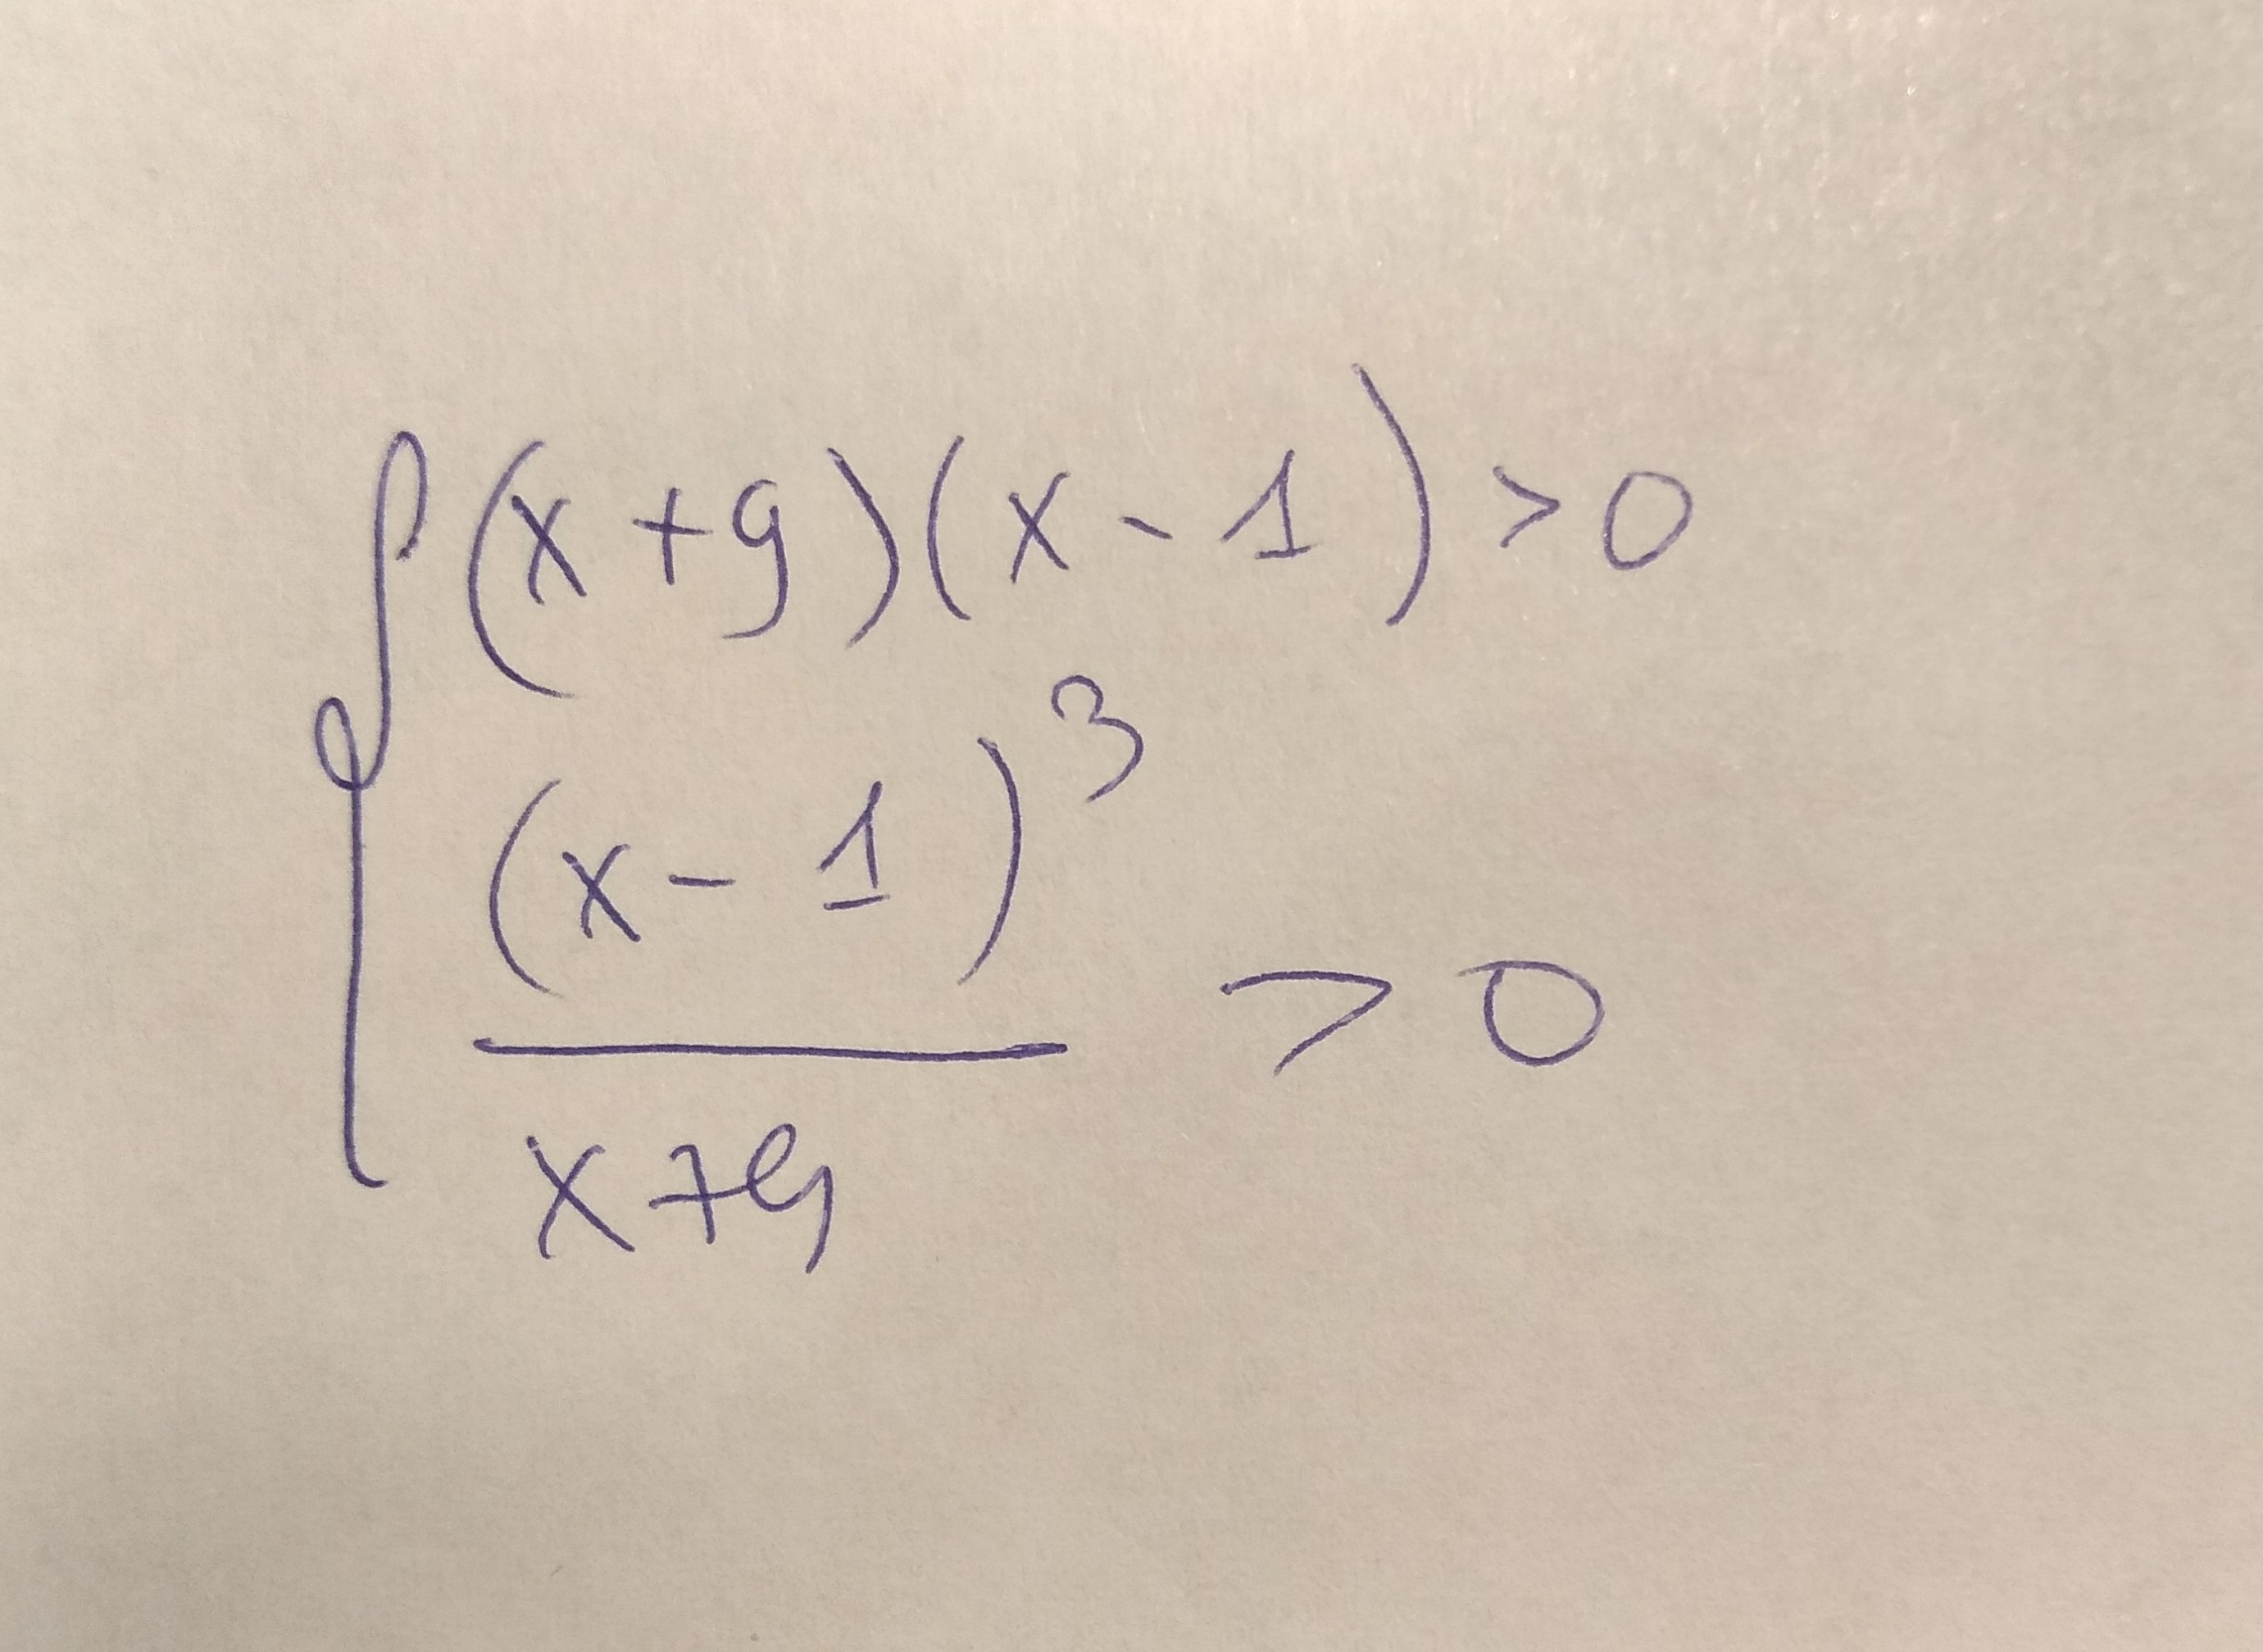 (x+9)(x-1)>0
(x-1)³
/
x+9 >0